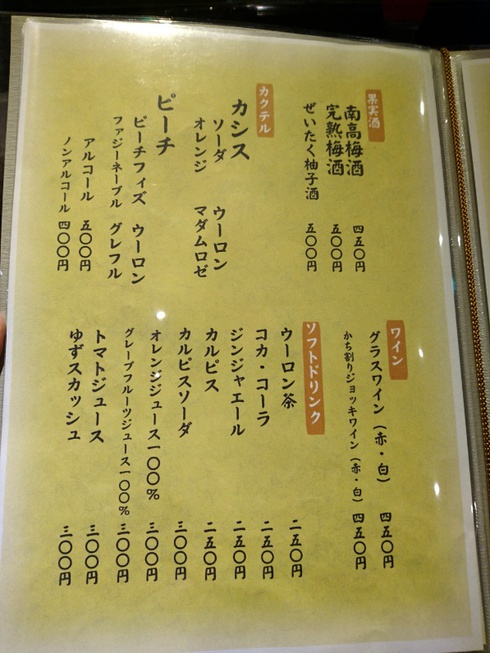 果実酒
南高梅酒 四五〇円
完熟梅酒 五〇〇円
ぜいたく柚子酒 五〇〇円
カクテル
カシス
ソーダ ウーロン
オレンジ マダムロゼ
ピーチ
ピーチフィズ ウーロン
ファジーネーブル グレフル
アルコール 五〇〇円
ノンアルコール 四〇〇円
ワイン
グラスワイン（赤・白） 四五〇円
かち割りジョッキワイン（赤・白） 四五〇円
ソフトドリンク
ウーロン茶 二五〇円
コカ・コーラ 二五〇円
ジンジャエール 二五〇円
カルピス 二五〇円
カルピスソーダ 三〇〇円
オレンジジュース一〇〇％ 三〇〇円
グレープフルーツジュース一〇〇％ 三〇〇円
トマトジュース 三〇〇円
ゆずスカッシュ 三〇〇円